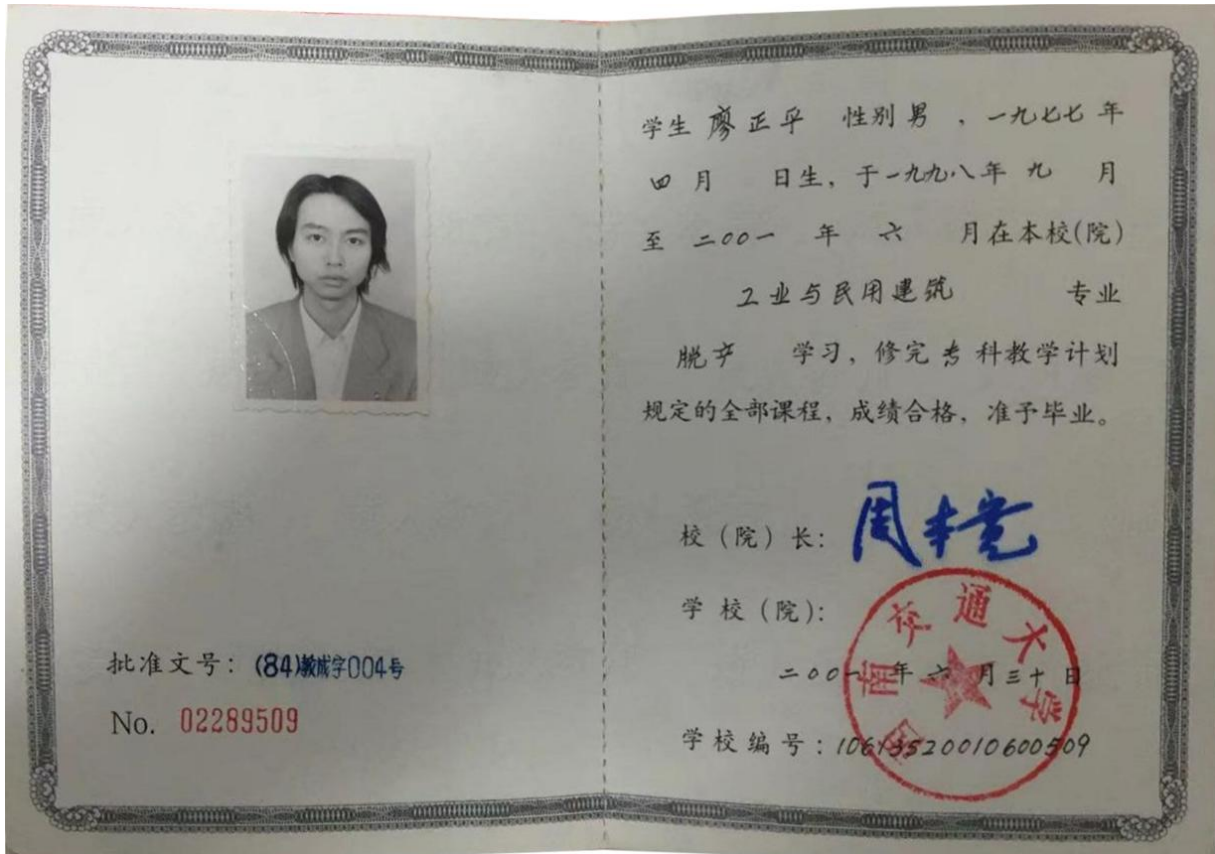 批准文号：(84)教成字004号
No. 02289509
学生 廖正平 性别 男 ，一九七七 年
四 月 日生，于一九九八年 九 月
至 二00一 年 六 月在本校(院)
工业与民用建筑 专业
脱产 学习，修完 专 科教学计划
规定的全部课程，成绩合格，准予毕业。
校（院）长：周本宽
学校（院）：
西南交通大学
二00一年六月三十日
学校编号：10613520010600509